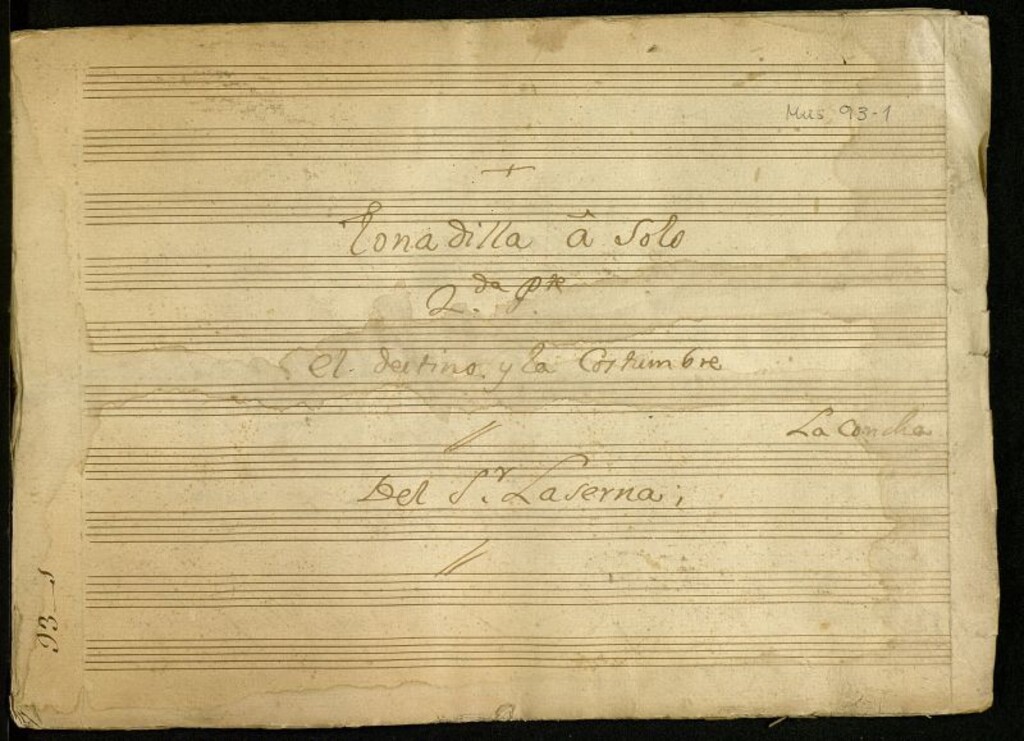 Mus 93-1
Tonadilla â Solo
2.da Pte
el destino y la Costumbre
La Concha
Del S.r Laserna;
93-1